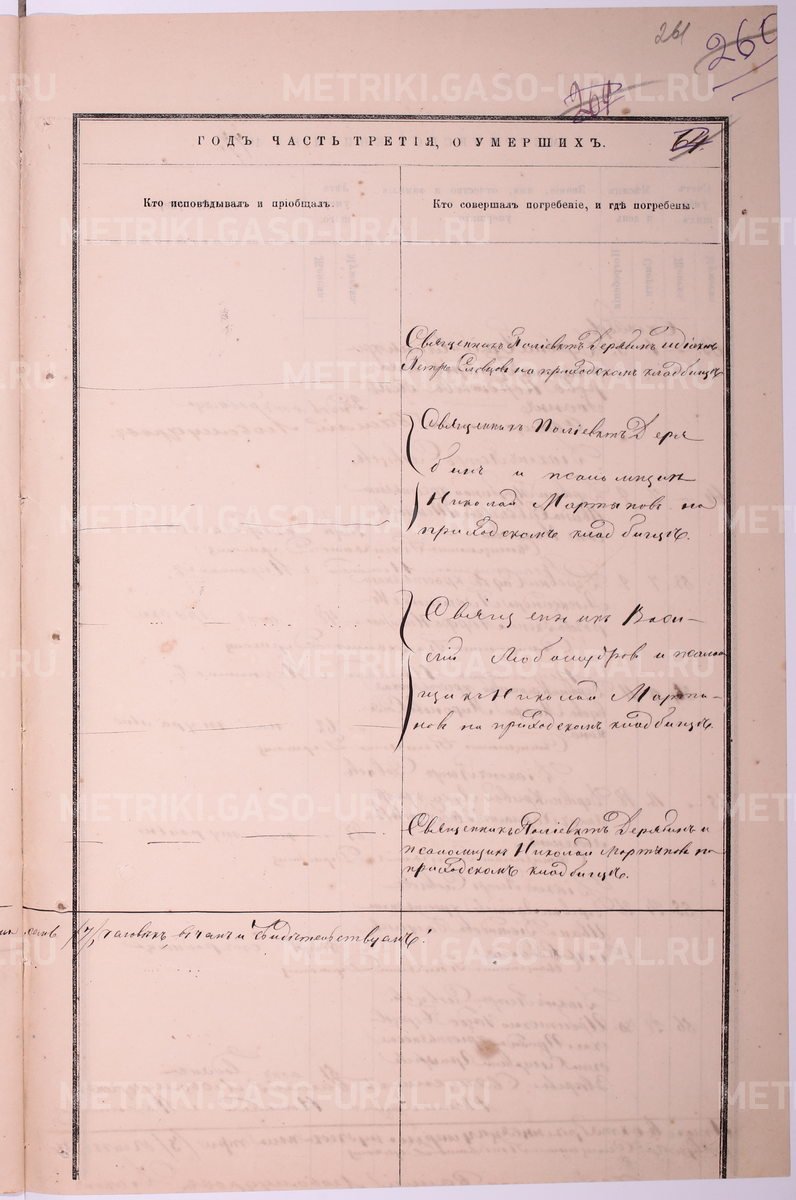 261
260
207
64
ГОДЪ ЧАСТЬ ТРЕТІЯ, О УМЕРШИХЪ.
Кто исповѣдывалъ и пріобщалъ.
Кто совершалъ погребеніе, и гдѣ погребены.
Священникъ Поліевктъ Дерябинъ и діаконъ
Петръ Словцовъ на приходскомъ кладбищѣ
Священникъ Поліевктъ Деря
бинъ и псаломщик
Николай Мартыновъ на
приходскомъ кладбищѣ.
Священникъ Васи-
лій Любомудровъ и псалом
щикъ Николай Марты-
новъ на приходскомъ кладбищѣ.
Священникъ Поліевктъ Дерябинъ и
псаломщикъ Николай Мартыновъ на
приходскомъ кладбищѣ.
/7/ человѣкъ, въ чемъ и свидѣтельствуемъ:
METRIKI.GASO-URAL.RU